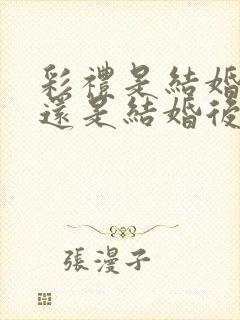 彩禮是結婚
還是結婚後
張漫子